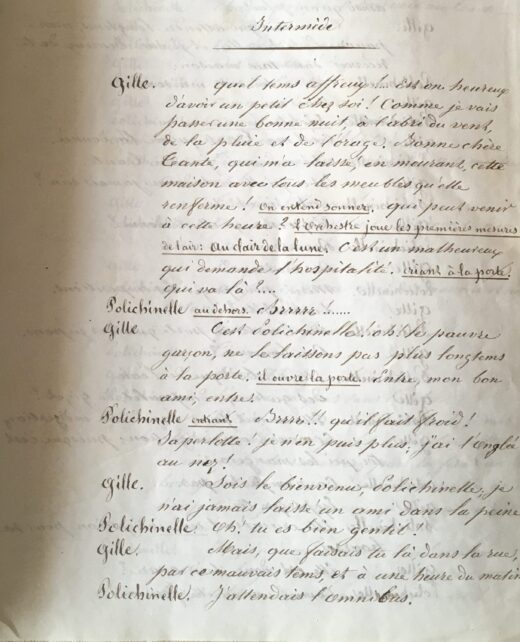 Intermède
Gille. quel tems affreux !... Est on heureux
d'avoir un petit chez soi ! Comme je vais
passer une bonne nuit, à l'abri du vent,
de la pluie et de l'orage. Bonne chère
Tante, qui m'a laissé, en mourant, cette
maison avec tous les meubles qu'elle
renferme ! on entend sonner. qui peut venir
à cette heure ? l'orchestre joue les premières mesures
de l'air : Au clair de la lune. C'est un malheureux
qui demande l'hospitalité. criant à la porte.
qui va là ?....
Polichinelle au dehors. Brrrrr !......
Gille C'est Polichinelle ! oh ! le pauvre
garçon, ne le laissons pas plus longtems
à la porte. il ouvre la porte. Entre, mon bon
ami, entre.
Polichinelle entrant. Brrrr !! qu'il fait froid !
Saperlotte ! je n'en puis plus, j'ai l'onglée
au nez !
Gille. Sois le bienvenu, Polichinelle, je
n'ai jamais laissé un ami dans la peine
Polichinelle. Oh ! tu es bien gentil !
Gille. Mais, que faisais tu là, dans la rue,
par ce mauvais tems, et à une heure du matin
Polichinelle. J'attendais l'omnibus.